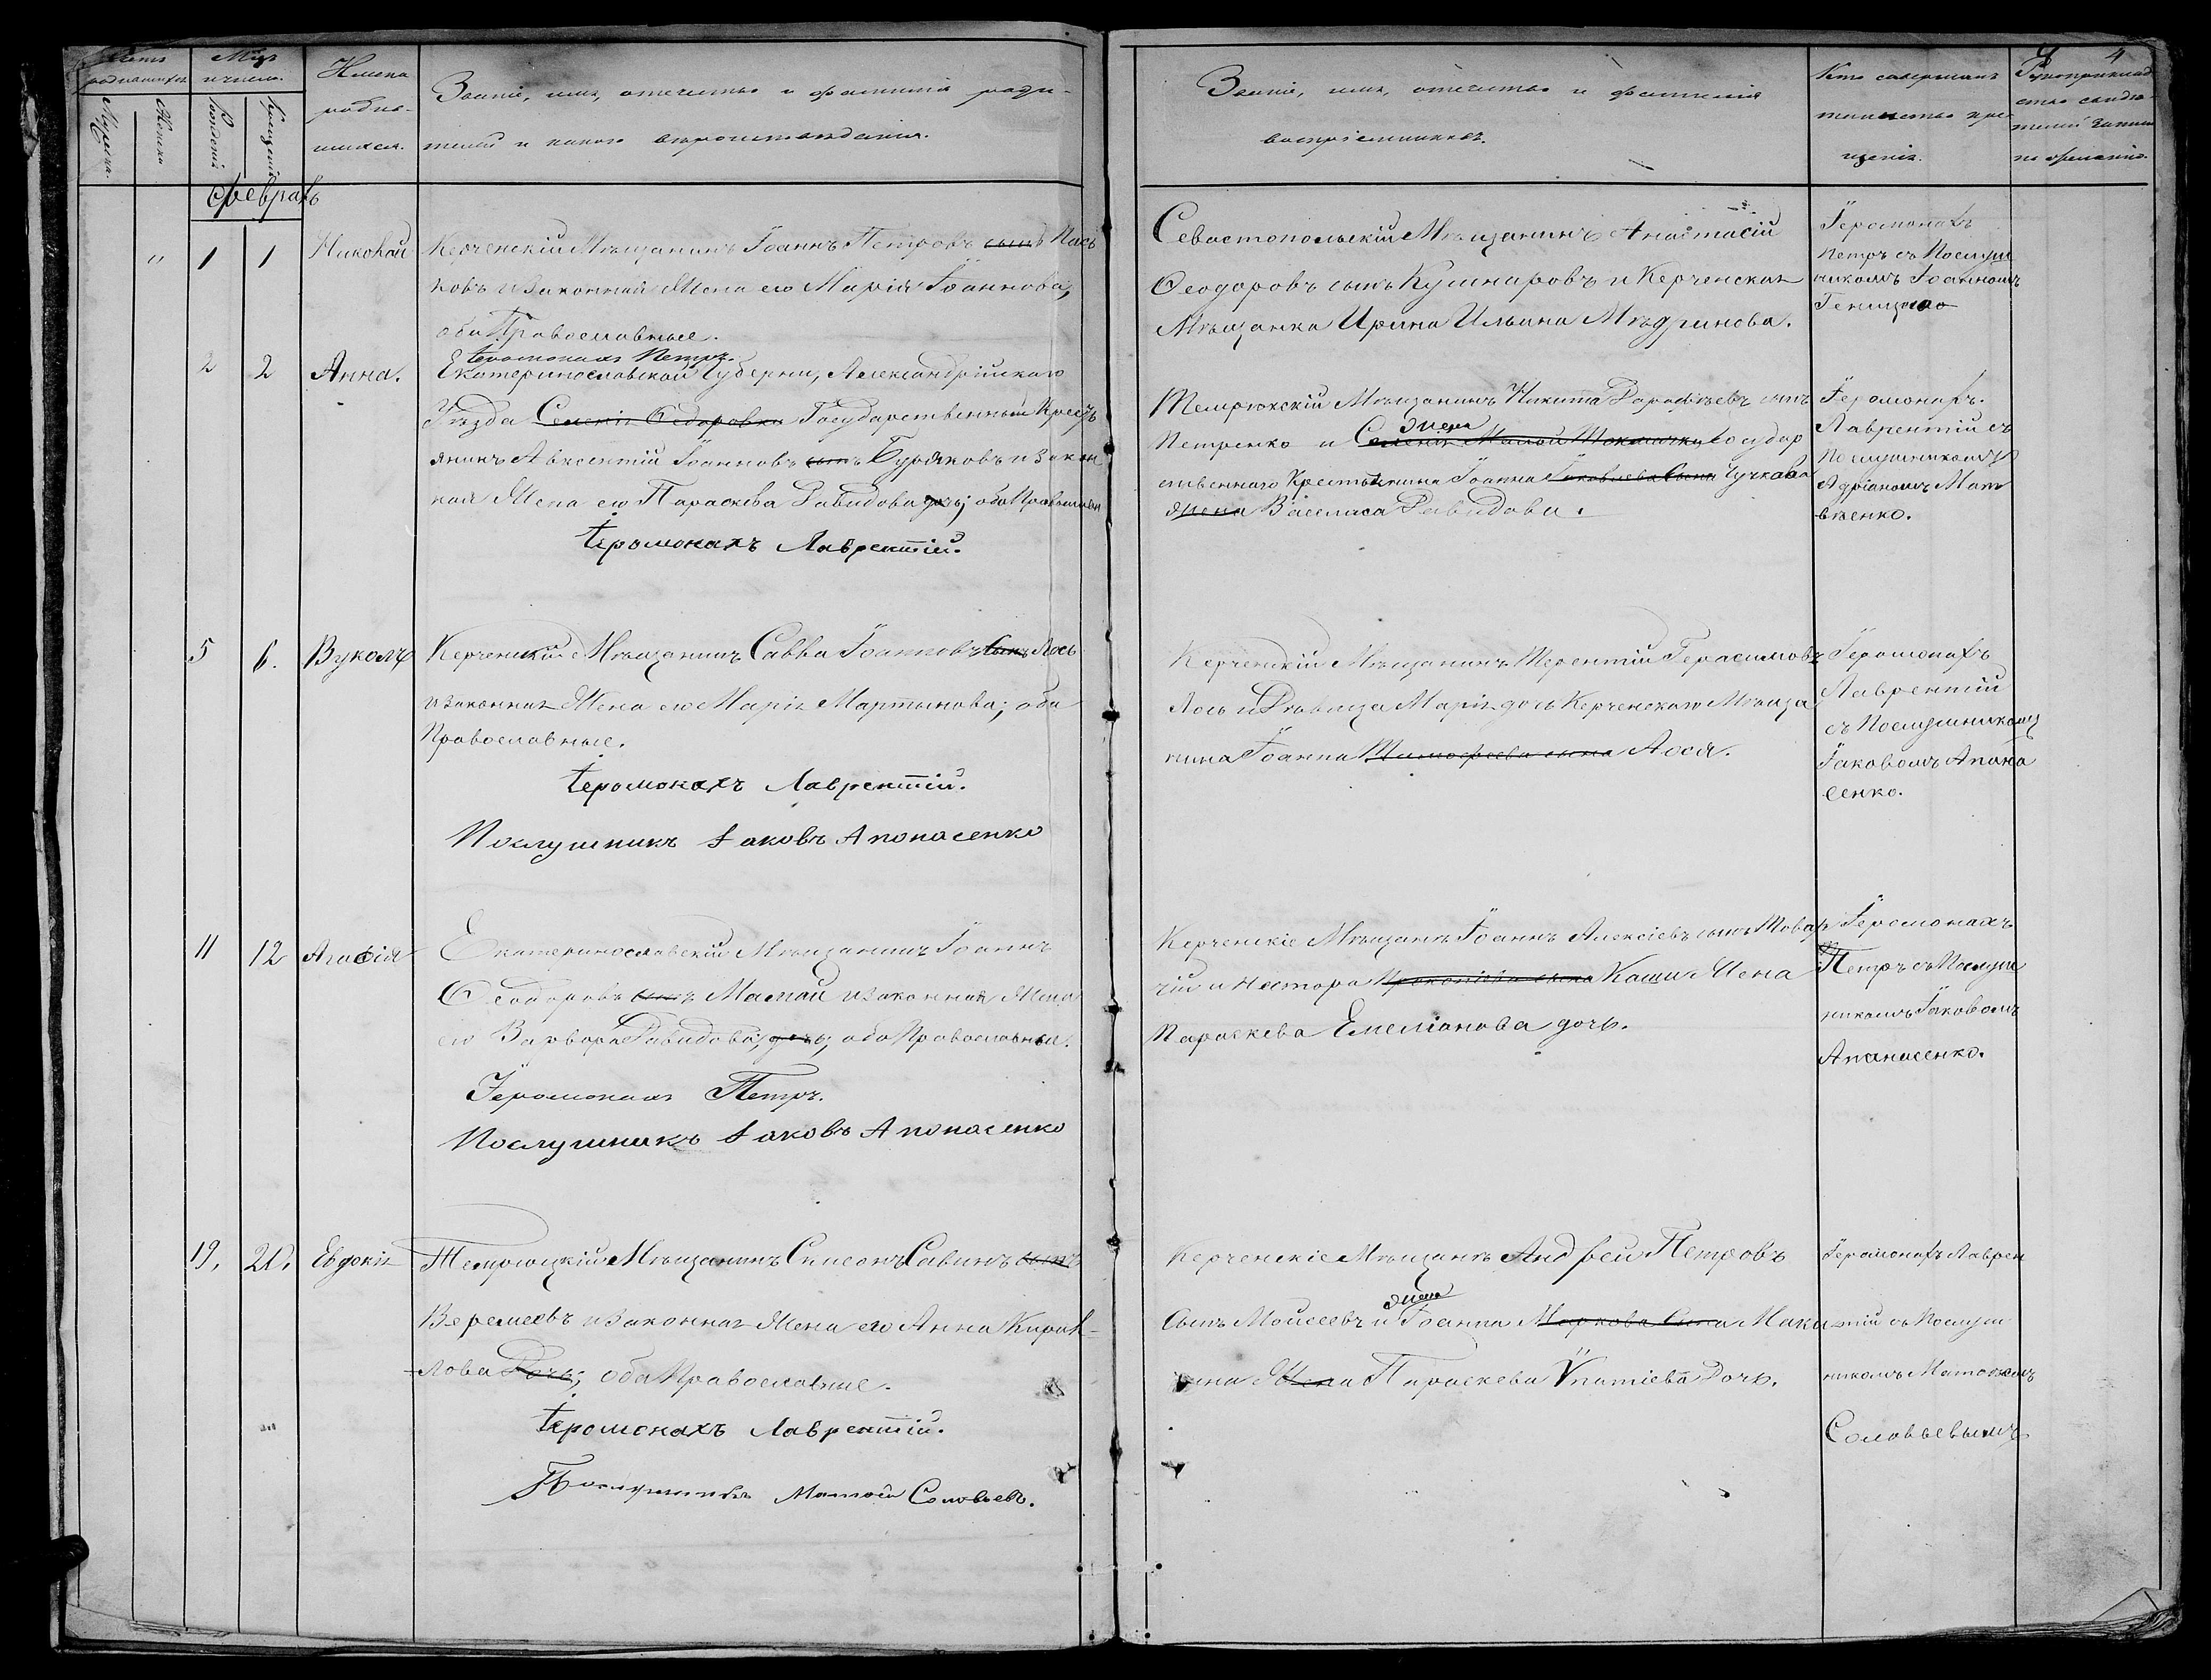 Счетъ родившихся
Мужска.
Женска
Мцъ и число.
Рожденія
Крещенія
Имена
родив-
шихся.
Званіе, имя, отечество и фамилія роди-
телей и какого вѣроисповѣданія.
Февраль
" 1 1 Николай
Керченскій Мѣщанинъ Іоаннъ Петровъ сынъ
ковъ и законная Жена его Марія Іоаннова,
оба Православные.
Іеромонахъ Петръ.
2 2 Анна.
Екатеринославской Губерніи, Александрійскаго
Уѣзда Селенія Федоровки Государственный Кресть
янинъ Авксентій Іоанновъ сынъ Бурдяковъ и закон
ная Жена его Параскева Давидова дочь; оба Православн
Іеромонахъ Лаврентій.
5 6. Вуколъ
Керченскій Мѣщанинъ Савва Іоанновъ сынъ Лось
и законная Жена его Марія Мартынова; оба
Православные.
Іеромонахъ Лаврентій.
Послушникъ Іаковъ Апонасенко
11 12 Агафія
Екатеринославскій Мѣщанинъ Іоаннъ
Феодоровъ сынъ Мамай и законная Жена
его Варвара Давидова, дочь; оба Православны.
Іеромонахъ Петръ.
Послушникъ Іаковъ Апонасенко
19. 20. Евдокія
Темрюцкій Мѣщанинъ Симеонъ Савинъ сынъ
Веремеевъ и законная Жена его Анна Кирил-
-лова Дочь; оба Православные.
Іеромонахъ Лаврентій.
Послушникъ Матвей Соловьевъ.
4
Званіе, имя, отечество и фамилія
воспріемниковъ.
Кто совершалъ
таинство кре
щенія.
Рукоприклад
ство свидѣ
телей записи
по желанію.
Севастопольскій Мѣщанинъ Анастасій
Феодоровъ сынъ Кушнаровъ и Керченская
Мѣщанка Ирина Ильина Мѣдринова.
Іеромонахъ
Петръ съ Послуш
никомъ Іоанномъ
Темрюкскій Мѣщанинъ Никита сынъ
Петренко и Селенія Малой Токмачки Государ
Жена
ственнаго Крестьянина Іоанна Іаковлева Сына Чучкова
жена Васелиса Давидова.
Іеромонахъ.
Лаврентій съ
Послушникомъ
Адріаномъ Мат
вѣенко.
Керченскій Мѣщанинъ Терентій Герасимовъ
Лось и Дѣвица Марія дочь Керченскаго Мѣща
нина Іоанна Тимофеева сына Лося.
Іеромонахъ
Лаврентій
съ Послушникомъ
Іаковомъ Апана
сенко.
Керченскіе Мѣщане Іоаннъ Алексіевъ сынъ Товар
чій и Нестора Прокопіева сына Каши Жена
Параскева Емеліанова дочь.
Іеромонахъ
Петръ съ Послуш
никомъ Іаковомъ
Апанасенко.
Керченскіе Мѣщане Андрей Петровъ
Сынъ Моисеевъ и Іоанна Маркова Сына Мака
жена
рина Жена Параскева Ѵпатіева Дочь.
Іеромонахъ Лаврен
тій съ Послуш
никомъ Матвеемъ
Соловьевымъ